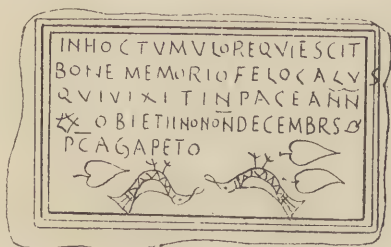 INHOCTVMVLOREQVIESCIT
BONE MEMORIO FELOCALVS
QVIVIXITINPACEANN
OBIETIINONONDECEMBRS
PCAGAPETO